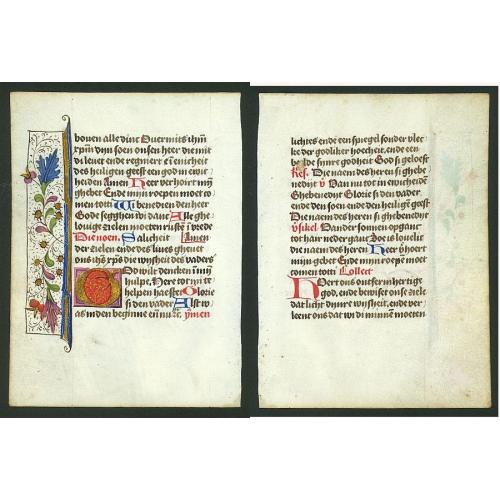 bouen alle dinc Ouermits ihm̄
xpm̄ dijn soen onsen heer die mit
di leuet ende regniert ī eenicheit
des heiligen geest een god in ewic
heiden Amen Heer verhoirt mijn
ghebet Ende mijn roepen moet co
men totti Wi benedien den heer
Gode segghen wi danc Alle ghe
louige zielen moeten rusten ī vrede
Die noen. Salicheit Amen
der zielen ende des liues gheuet
ons ihūs xps die wijsheit des vaders
God wilt dencken ī mijn
hulpe, Heer tot mi te
helpen haeste Glorie
si den vader Alst w
as inden beginne eñ nu etc. ymen
lichtes ende een spiegel sonder vlec
ke der godliker hoecheit, ende een
beelde sijnre godheit God si geloeft
Res. Die naem des heren si ghebe
nedijt V Van nu tot in ewicheide
Ghebenedijt Glorie si den vader
Die naem des heren si ghebenedijt
Versikel Van der sonnen opganc
tot haer nedergant Soe is louelic
die naem des heren Heer verhoert
mijn gebet Ende mijn roepen moet
comen totti Collect
Heer ons ontfermhertige
god, ende bewijst onse ziele
dat licht dijnre wijsheit, ende ver
leent ons dat wi di minnen moeten